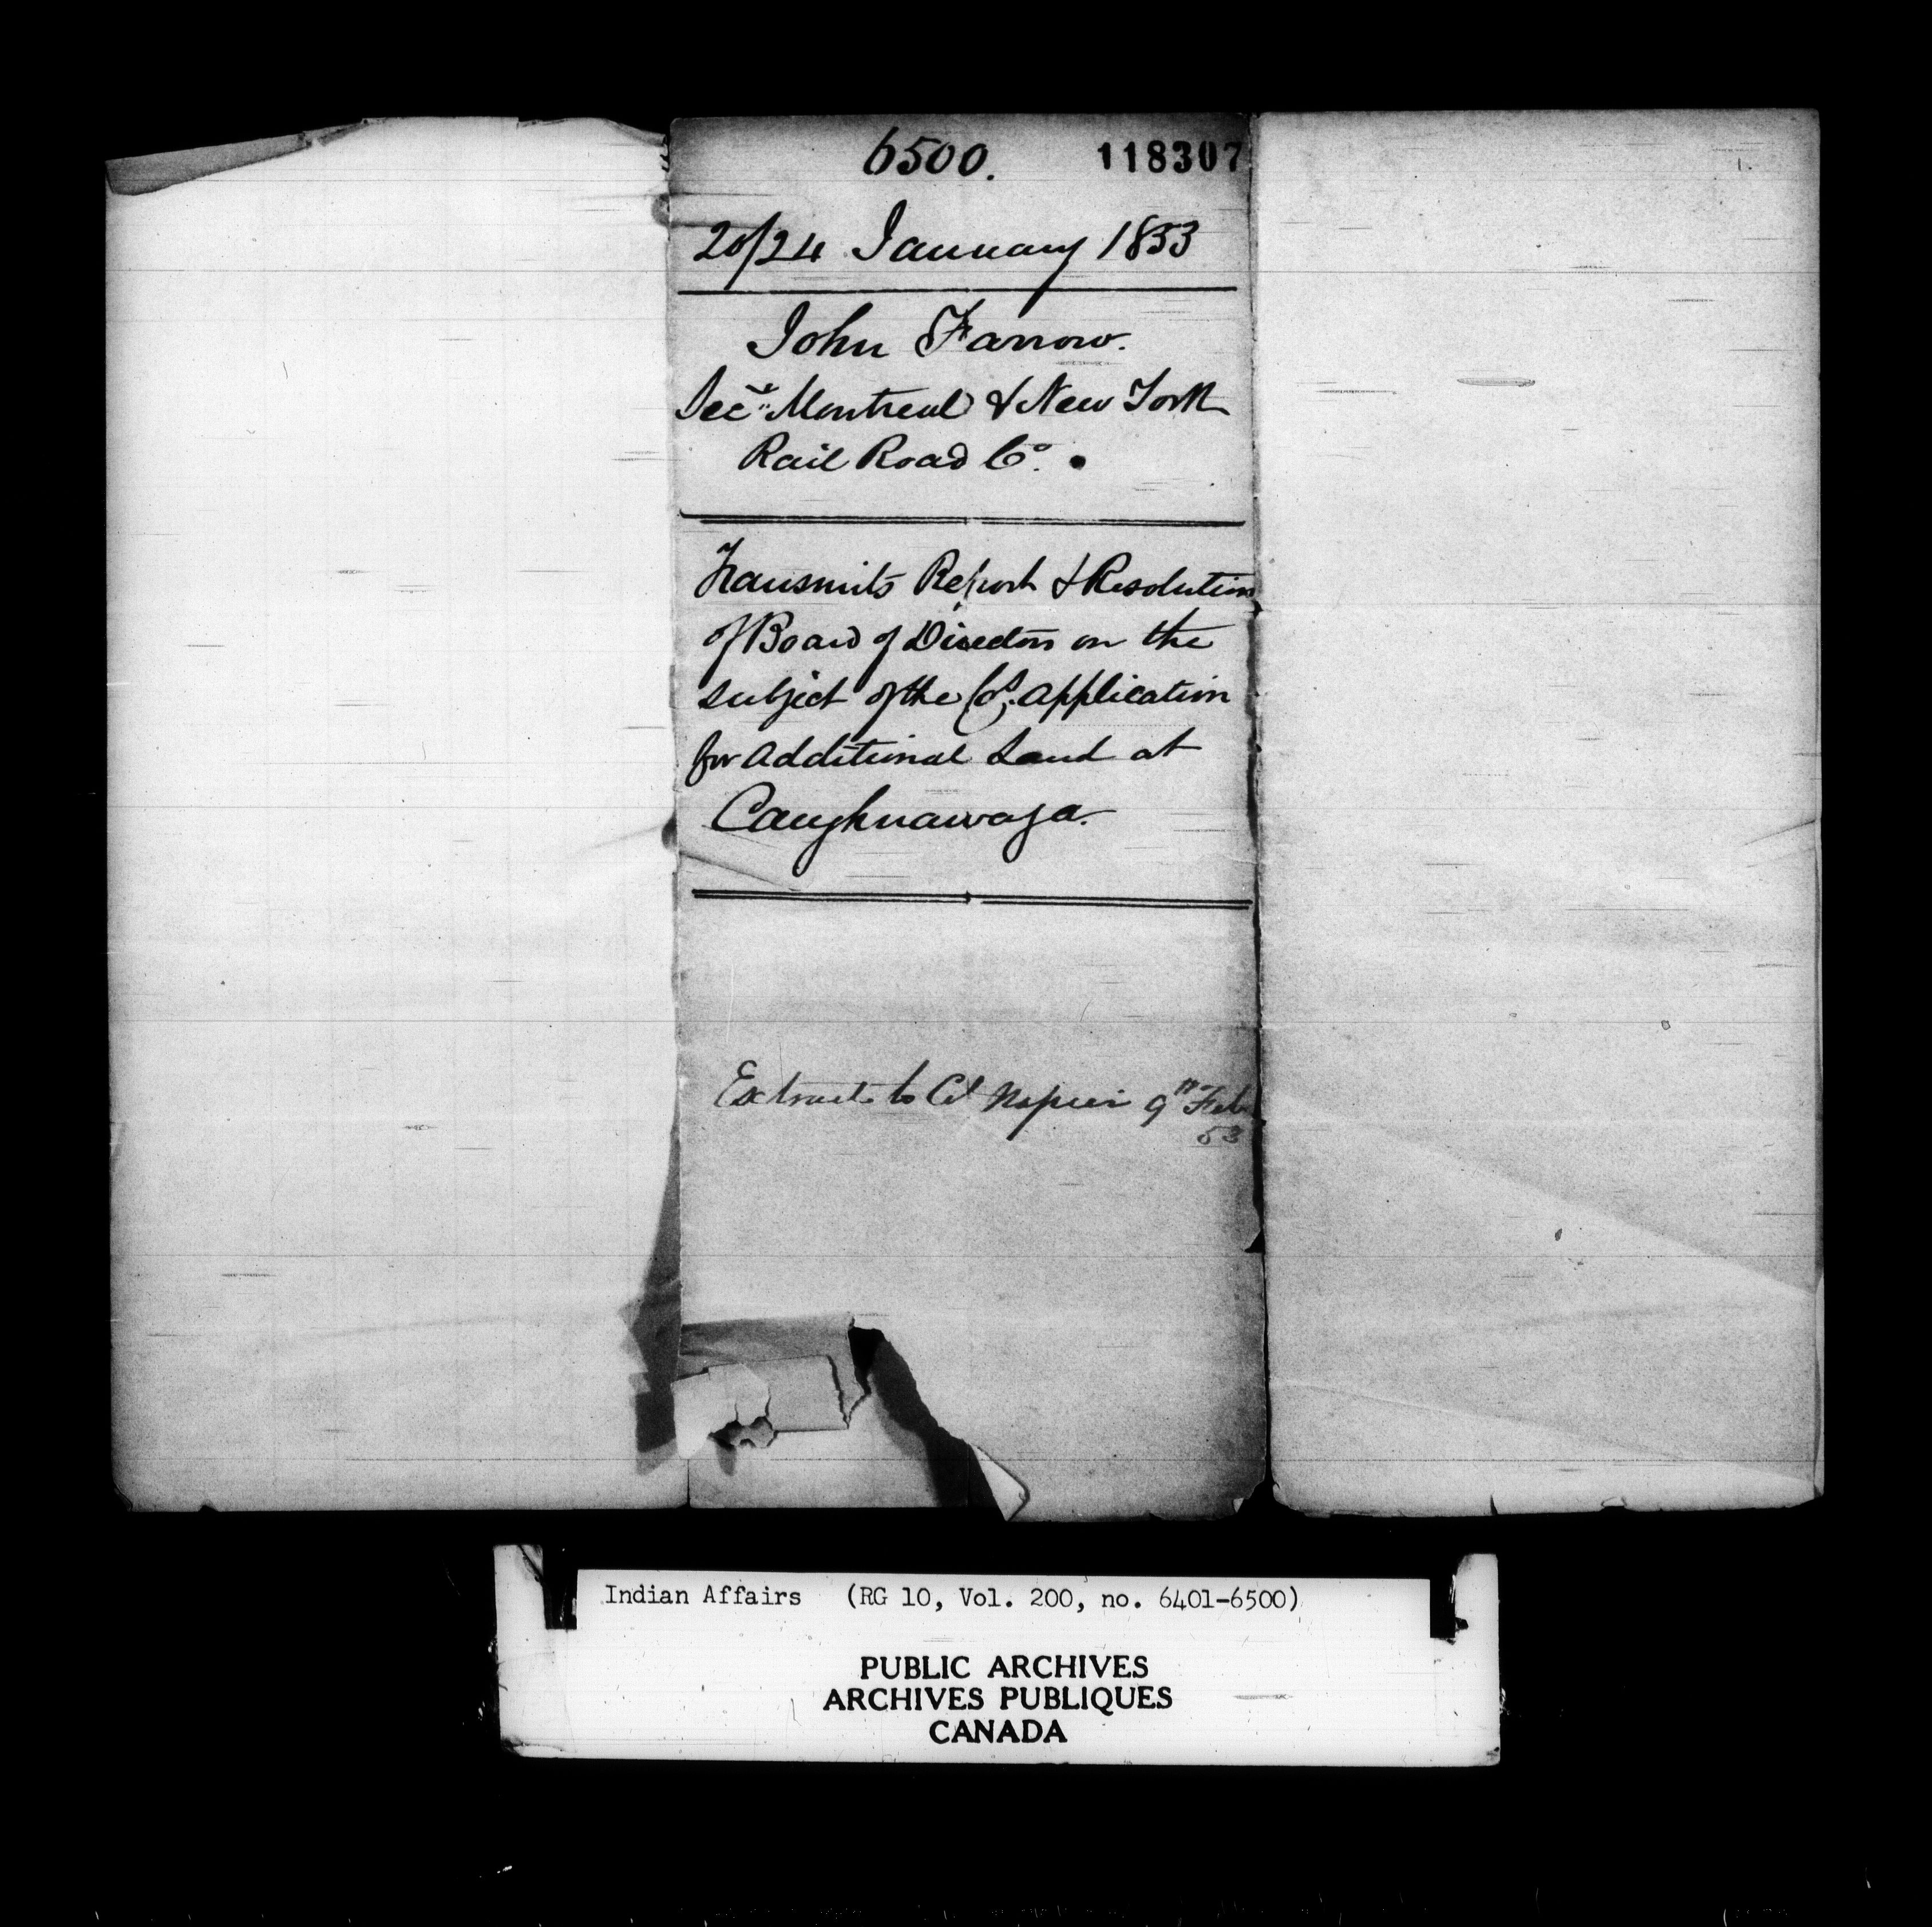 6500. 118307
20/24 January 1853
John Farrow.
Secy Montreal & New York
Rail Road Co.
Transmits Report & Resolution
of Board of Directors on the
subject of the Cos. application
for additional Land at
Caughnawaga.
Extract to Col Napier 9th Feb
53
Indian Affairs (RG 10, Vol. 200, no. 6401-6500)
PUBLIC ARCHIVES
ARCHIVES PUBLIQUES
CANADA